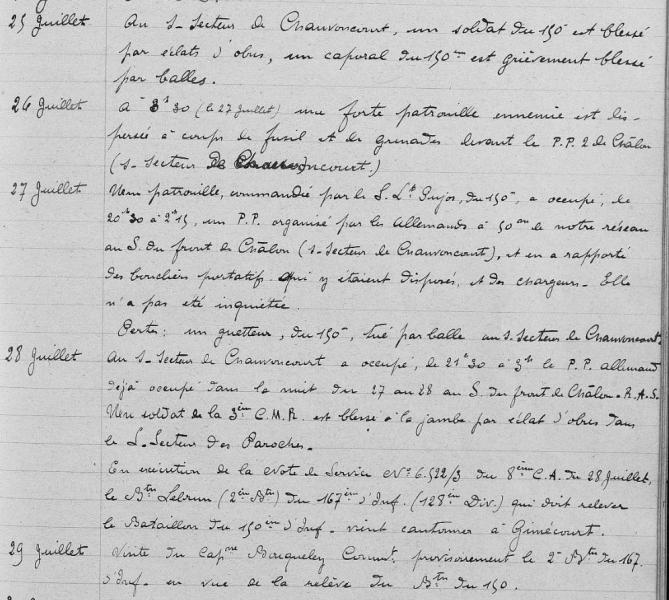 25 Juillet Au S-Secteur de Chauvoncourt, un soldat du 150e est blessé
par éclats d'obus, un caporal du 150me est grièvement blessé
par balles.
26 Juillet A 3h30 (le 27 Juillet) une forte patrouille ennemie est dis-
persée à coups de fusil et de grenades devant le P.P. 2 de Châlon
(S-Secteur de Chauvoncourt.)
27 Juillet Une patrouille, commandée par le S. Lt Pujos, du 150e, a occupé, de
20h30 à 2h15, un P.P. organisé par les Allemands à 50m de notre réseau
au S. du front de Châlon (S-Secteur de Chauvoncourt), et en a rapporté
des boucliers portatifs qui y étaient disposés, et des chargeurs. Elle
n'a pas été inquiétée.
Perte: un guetteur, du 150e, tué par balle au S-Secteur de Chauvoncourt.
28 Juillet Au S-Secteur de Chauvoncourt a occupé, de 21h30 à 3h le P.P. allemand
déjà occupé dans la nuit du 27 au 28 au S. du front de Châlon. R.A.S.
Un soldat de la 3ème C.M.R. est blessé à la jambe par éclat d'obus dans
le S-Secteur des Paroches.
En exécution de la Note de Service No 6.522/3 du 8ème C.A. du 28 Juillet,
le Btn Lebrun (2ème Btn) du 167ème d'Inf. (128ème Div.) qui doit relever
le Bataillon du 150ème d'Inf. vient cantonner à Gimécourt.
29 Juillet Visite du Capne Commt. provisoirement le 2e Btn du 167.
d'Inf. en vue de la relève du Btn du 150.